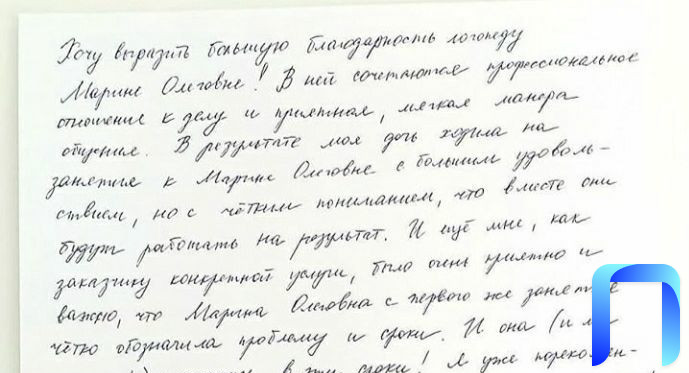 Хочу выразить большую благодарность логопеду
Марине Олеговне! В ней сочетаются профессиональное
отношение к делу и приятная, мягкая манера
общения. В результате моя дочь ходила на
занятие к Марине Олеговне с большим удоволь-
ствием, но с чётким пониманием, что вместе они
будут работать на результат. И ещё мне, как
заказчику конкретной услуги, было очень приятно и
важно, что Марина Олеговна с первого же занятие
чётко обозначила проблему и сроки. И она (и мы
в эти сроки! Я уже порекомен-